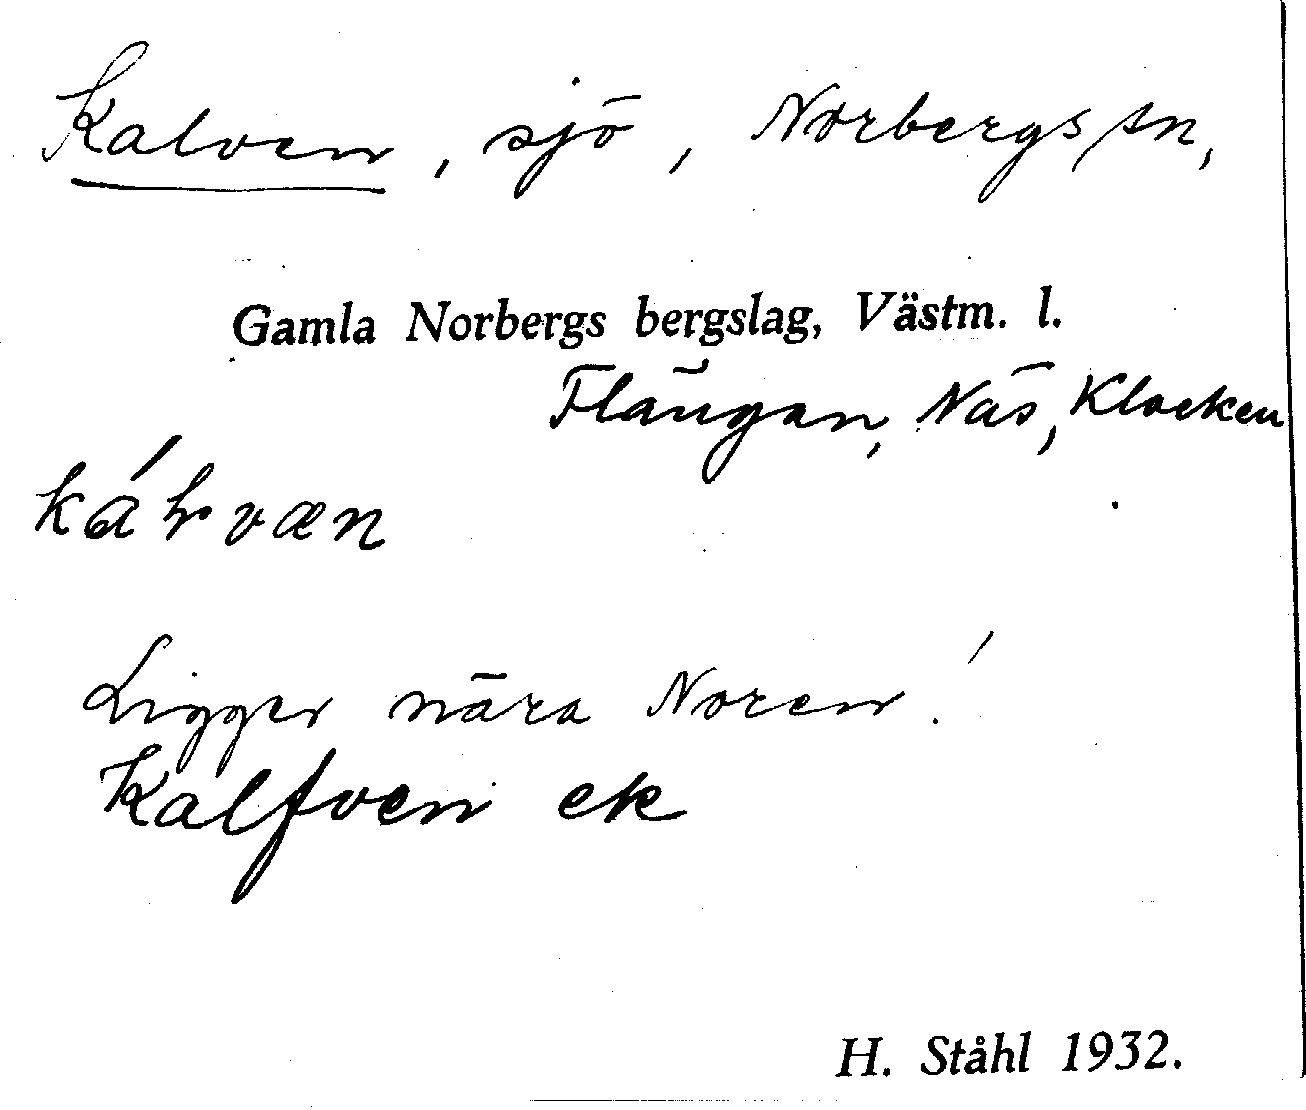 Kalven, sjö, Norbergs sn,
Gamla Norbergs bergslag, Västm. l.
Flängan, Näs, Klocken
Ligger nära Noren!
Kalfven ek
H. Ståhl 1932.